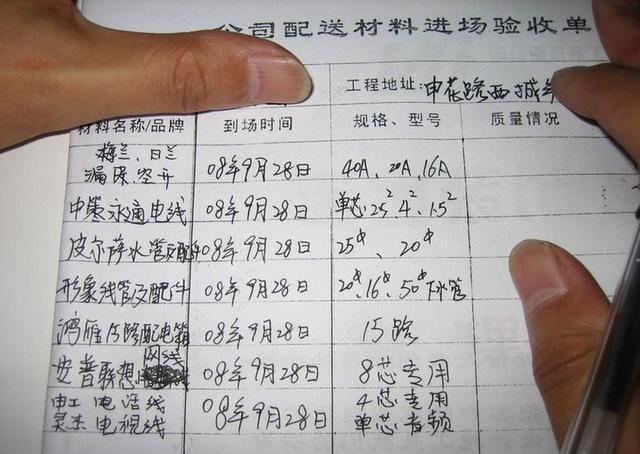 公司配送材料进场验收单
工程地址:申花路西城
材料名称/品牌 到场时间 规格、型号 质量情况
梅兰、日兰
漏保、空开 08年9月28日 40A、20A、16A
中策永通电线 08年9月28日 单芯2.5² 4² 1.5²
皮尔萨水管及配件 08年9月28日 25⌀、20⌀
形象线管及配件 08年9月28日 20⌀ 16⌀ 50⌀下水管
鸿雁15路配电箱 08年9月28日 15路
网线
安普联想 08年9月28日 8芯专用
电话线 08年9月28日 4芯专用
电视线 单芯音频